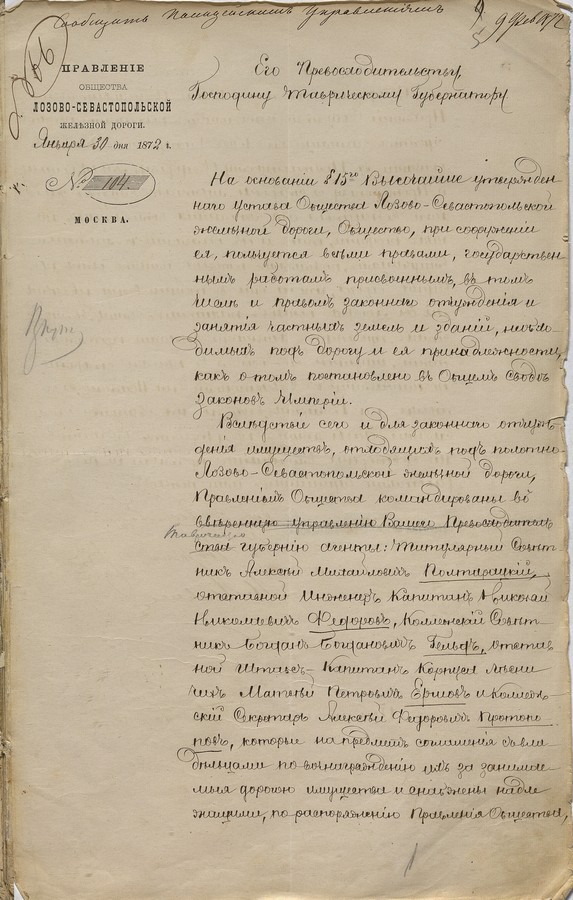 Сообщить Полицейскимъ Управленіямъ
9 Фев 1872
ПРАВЛЕНІЕ
ОБЩЕСТВА
ЛОЗОВО-СЕВАСТОПОЛЬСКОЙ
ЖЕЛѢЗНОЙ ДОРОГИ.
Января 30 дня 1872 г.
№ 104
МОСКВА.
Его Превосходительству,
Господину Таврическому Губернатору
На основаніи § 15го Высочайше утвержден
наго устава Общества Лозово-Севастопольской
желѣзной дороги, Общество, при сооруженіи
ея, пользуется всѣми правами, государствен
нымъ работамъ присвоенными, въ томъ
числѣ и правомъ законнаго отчужденія и
занятія частныхъ земель и зданій, необхо
димыхъ подъ дорогу и ея принадлежности,
какъ о томъ постановлено въ Общемъ Сводѣ
Законовъ Имперіи.
Вслѣдствіе сего и для законнаго отчуж
денія имуществъ, отходящихъ подъ полотно
Лозово-Севастопольской желѣзной дороги,
Правленіемъ Общества командированы во
ввѣренную управленію Вашего Превосходитель
Таврическую
ства губернію агенты: Титулярный Совѣт
никъ Алексѣй Михайловичъ Полторацкій,
отставной Инженеръ Капитанъ Николай
Николаевичъ Федоровъ, Коллежскій Совѣт
никъ Богданъ Богдановичъ Гельфъ, отстав
ной Штабсъ-Капитанъ Корпуса Лѣсни
чихъ Матвѣй Петровичъ Ершовъ и Коллеж
скій Секретарь Алексѣй Федоровичъ Протопо
повъ, которые на предметъ соглашенія съ вла
дѣльцами по вознагражденію ихъ за занимае
мыя дорогою имущества и снабжены надле
жащими, по распоряженію Правленія Общества,